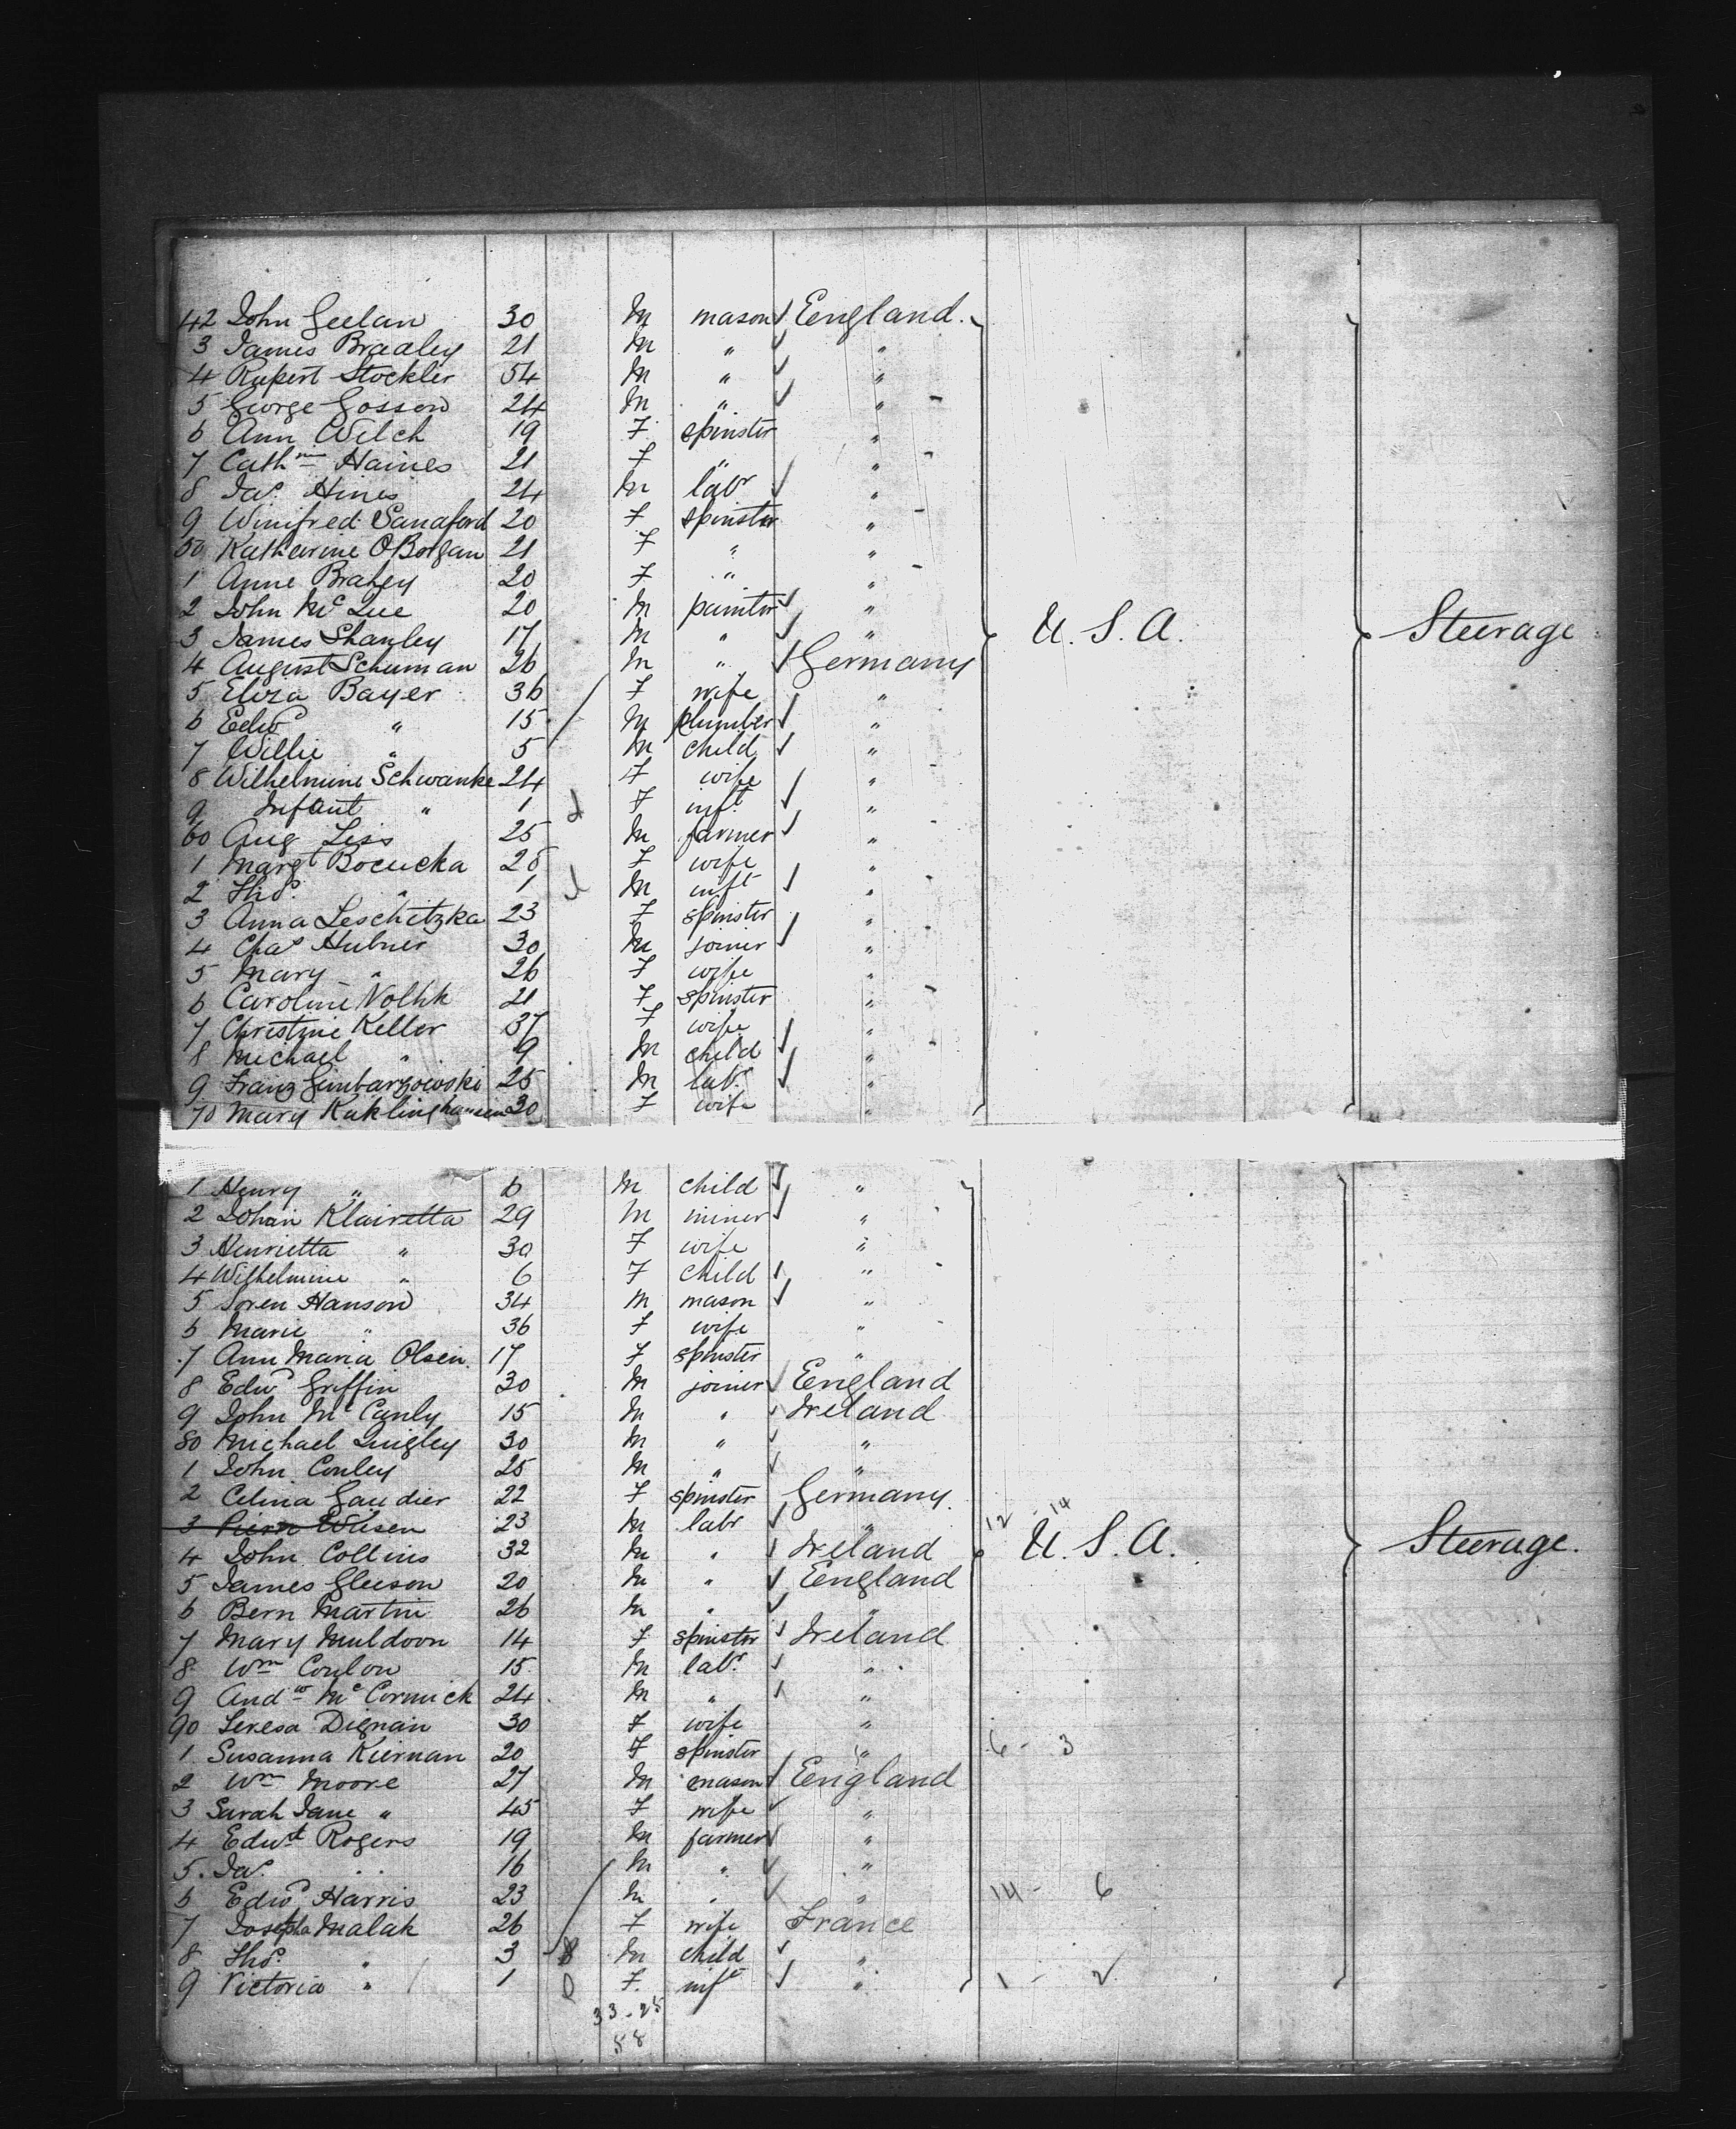 42 John Geelan 30 M mason ✓ England.
3 James Bradley 21 M " ✓ "
4 Rupert Stockler 54 M " ✓ "
5 George Gosson 24 M " ✓ "
6 Ann Welch 19 F spinster "
7 Cathne Haines 21 F " "
8 Jas. Hines 24 M labr ✓ "
9 Winifred Sandford 20 F spinster "
50 Katharine O'Borgan 21 F " "
1 Anne Brahey 20 F " "
2 John McLue 20 M painter ✓ "
3 James Shanley 17 M " ✓ " U. S. A. Steerage
4 August Schuman 26 M " ✓ Germany
5 Eliza Bayer 36 F wife "
6 Edwd " 15 M plumber ✓ "
7 Willie " 5 M child ✓ "
8 Wilhelmine Schwanke 24 F wife "
9 Infant " 1 F inft ✓ "
60 Aug Liss 25 M farmer ✓ "
1 Margt Bocucka 28 F wife "
2 Thos. " 1 M inft ✓ "
3 Anna Leschetzka 23 F spinster "
4 Chas Hubner 30 M joiner ✓ "
5 Mary " 26 F wife "
6 Caroline Nolhk 21 F spinster "
7 Christine Keller 37 F wife "
8 Michael " 9 M child ✓ "
9 Franz Gimbarzowski 25 M labr. ✓ "
70 Mary Kuklinghausen 30 F wife "
1 Henry " 6 M child ✓ "
2 Johan Klairetta 29 M miner ✓ "
3 Henrietta " 30 F wife "
4 Wilhelmine " 6 F child ✓ "
5 Soren Hanson 34 M mason ✓ "
6 Marie " 36 F wife "
7 Ann Maria Olsen. 17 F spinster "
8 Edwd Griffin 30 M joiner ✓ England
9 John McCanly 15 M " ✓ Ireland
80 Michael Quigley 30 M " ✓ "
1 John Conley 25 M " ✓ "
2 Celina Gaudier 22 F spinster Germany.
3 Pierre Wusen 23 M labr ✓ " 12 - 14
4 John Collins 32 M " ✓ Ireland U. S. A. Steerage.
5 James Gleeson 20 M " ✓ England
6 Bern Martin 26 M " ✓ "
7 Mary Muldoon 14 F spinster ✓ Ireland
8 Wm Conlon 15 M labr. ✓ "
9 Andw McCormick 24 M " ✓ "
90 Teresa Dignain 30 F wife "
1 Susanna Kiernan 20 F spinster " 6 - 3
2 Wm Moore 27 M mason ✓ England
3 Sarah Jane " 45 F wife ✓ "
4 Edwd Rogers 19 M farmer ✓ "
5. Jas. " 16 M " ✓ "
6 Edwd Harris 23 M " ✓ " 14 - 6
7 Josepha Malak 26 F wife France
8 Thos. " 3 M child ✓ "
9 Victoria " 1 F. inft ✓ " 1 - 2
33 - 25
58